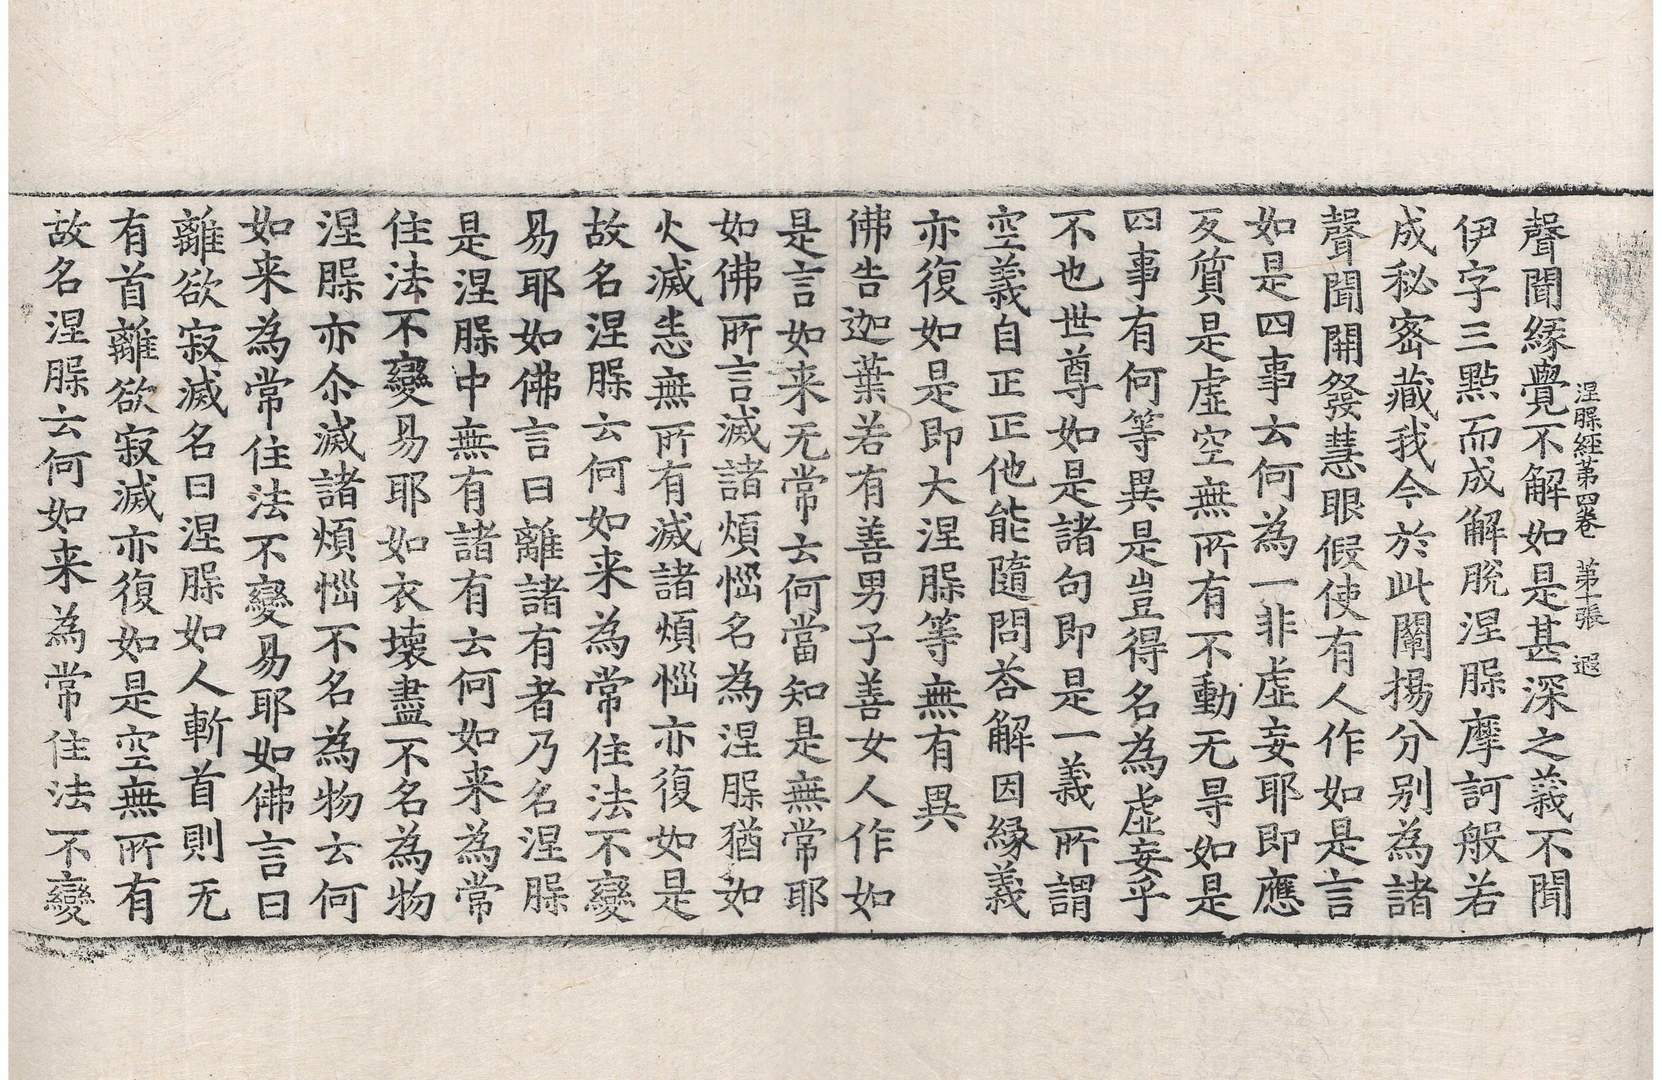 涅槃經第四卷 第十張 遐
聲聞緣覺不解如是甚深之義不聞
伊字三點而成解脫涅槃摩訶般若
成秘密藏我今於此闡揚分別為諸
聲聞開發慧眼假使有人作如是言
如是四事云何為一非虛妄耶即應
反質是虛空無所有不動无㝵如是
四事有何等異是豈得名為虛妄乎
不也世尊如是諸句即是一義所謂
空義自正正他能隨問荅解因緣義
亦復如是即大涅槃等無有異
佛告迦葉若有善男子善女人作如
是言如来无常云何當知是無常耶
如佛所言滅諸煩惱名為涅槃猶如
火滅悉無所有滅諸煩惱亦復如是
故名涅槃云何如来為常住法不變
易耶如佛言曰離諸有者乃名涅槃
是涅槃中無有諸有云何如来為常
住法不變易耶如衣壞盡不名為物
涅槃亦尒滅諸煩惱不名為物云何
如来為常住法不變易耶如佛言曰
離欲寂滅名曰涅槃如人斬首則无
有首離欲寂滅亦復如是空無所有
故名涅槃云何如来為常住法不變